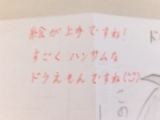 絵が上手ですね!
すごくハンサムな
ドラえもんですね(^^)
ド